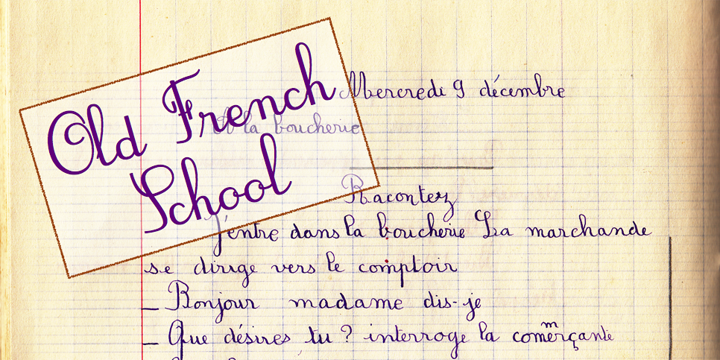 Old French
School
Mercredi 9 décembre
A la boucherie
Racontez
J'entre dans la boucherie La marchande
se dirige vers le comptoir
_ Bonjour madame dis-je
_ Que désires tu ? interroge la comemerçante